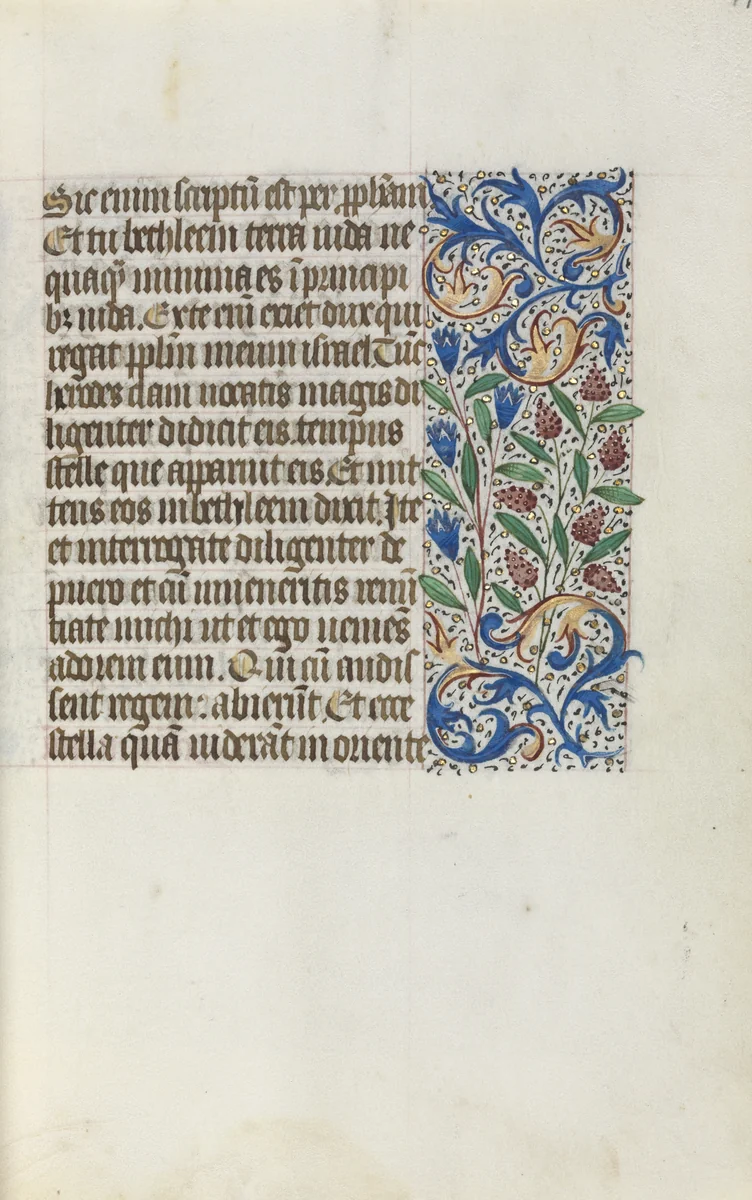 Sic enim scriptū est per pphām
Et tu bethleem terra iuda ne
quaqʒ minima es ī principi
bʒ iuda. Ex te eni exiet dux qui
regat pplm meum israel. Tūc
herodes clam uocatis magis di
ligenter didicit eis tempus
stelle que apparuit eis. Et mit
tens eos in bethleem dixit. Ite
et interrogate diligenter de
puero et cū inueneritis renū
tiate michi ut et ego ueniēs
adorem eum. Qui cū audis
sent regem: abierūt. Et ecce
stella quā uiderāt in oriente